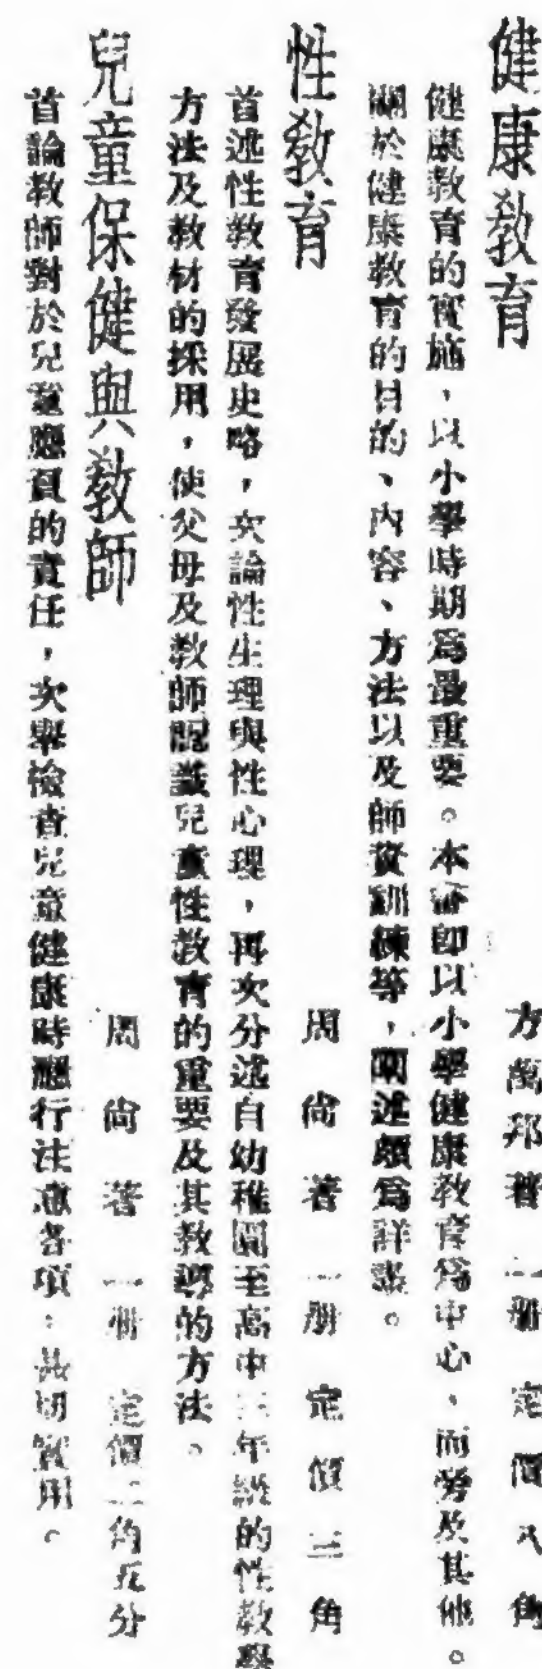 健康教育
方萬邦著 一册 定價八角
健康教育的實施，以小學時期爲最重要。本書卽以小學健康教育爲中心，而旁及其他。
關於健康教育的目的、內容、方法以及師資訓練等，闡述頗爲詳盡。
性教育
周尙著 一册 定價三角
首述性教育發展史略，次論性生理與性心理，再次分述自幼稚園至高中三年級的性教學
方法及教材的採用，使父母及教師認識兒童性教育的重要及其教導的方法。
兒童保健與教師
周尙著 一册 定價二角五分
首論教師對於兒童應負的責任，次舉檢查兒童健康時應行注意各項；甚切實用。